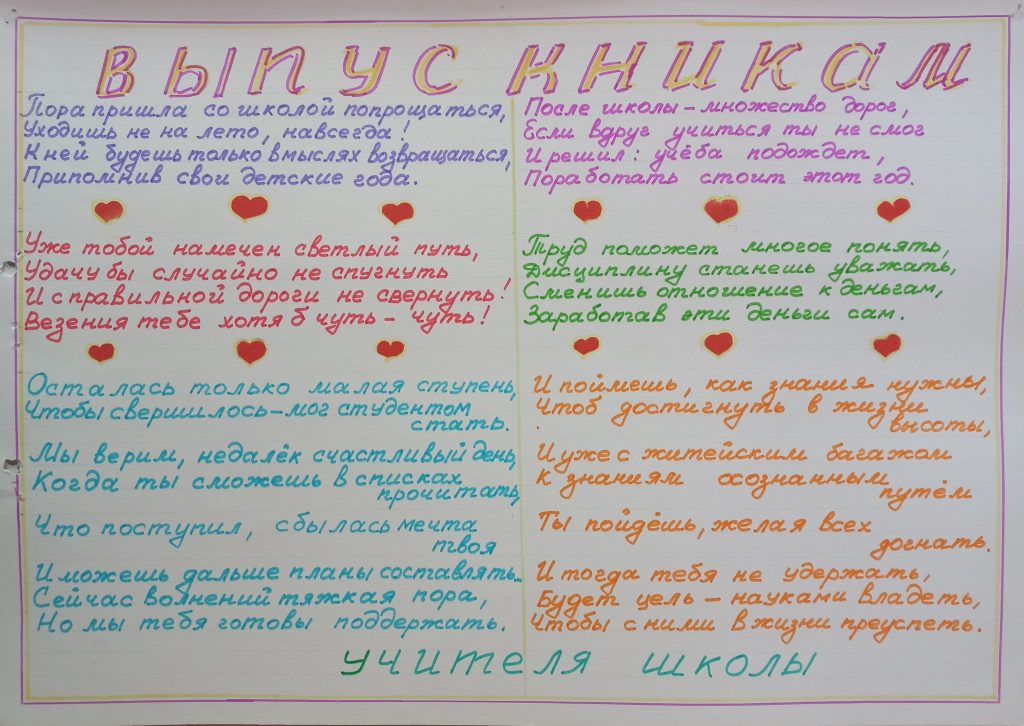 ВЫПУСКНИКАМ
Пора пришла со школой попрощаться,
Уходишь не на лето, навсегда!
К ней будешь только в мыслях возвращаться,
Припомнив свои детские года.
Уже тобой намечен светлый путь,
Удачу бы случайно не спугнуть
И с правильной дороги не свернуть!
Везения тебе хотя б чуть-чуть!
Осталась только малая ступень,
Чтобы свершилось – мог студентом
стать.
Мы верим, недалёк счастливый день,
Когда ты сможешь в списках
прочитать,
Что поступил, сбылась мечта
твоя
И можешь дальше планы составлять...
Сейчас волнений тяжкая пора,
Но мы тебя готовы поддержать.
После школы – множество дорог,
Если вдруг учиться ты не смог
И решил: учёба подождет,
Поработать стоит этот год.
Труд поможет многое понять,
Дисциплину станешь уважать,
Сменишь отношение к деньгам,
Заработав эти деньги сам.
И поймешь, как знания нужны,
Чтоб достигнуть в жизни
высоты,
И уже с житейским багажом
К знаниям осознанным
путём
Ты пойдёшь, желая всех
догнать.
И тогда тебя не удержать,
Будет цель – науками владеть,
Чтобы с ними в жизни преуспеть.
УЧИТЕЛЯ ШКОЛЫ